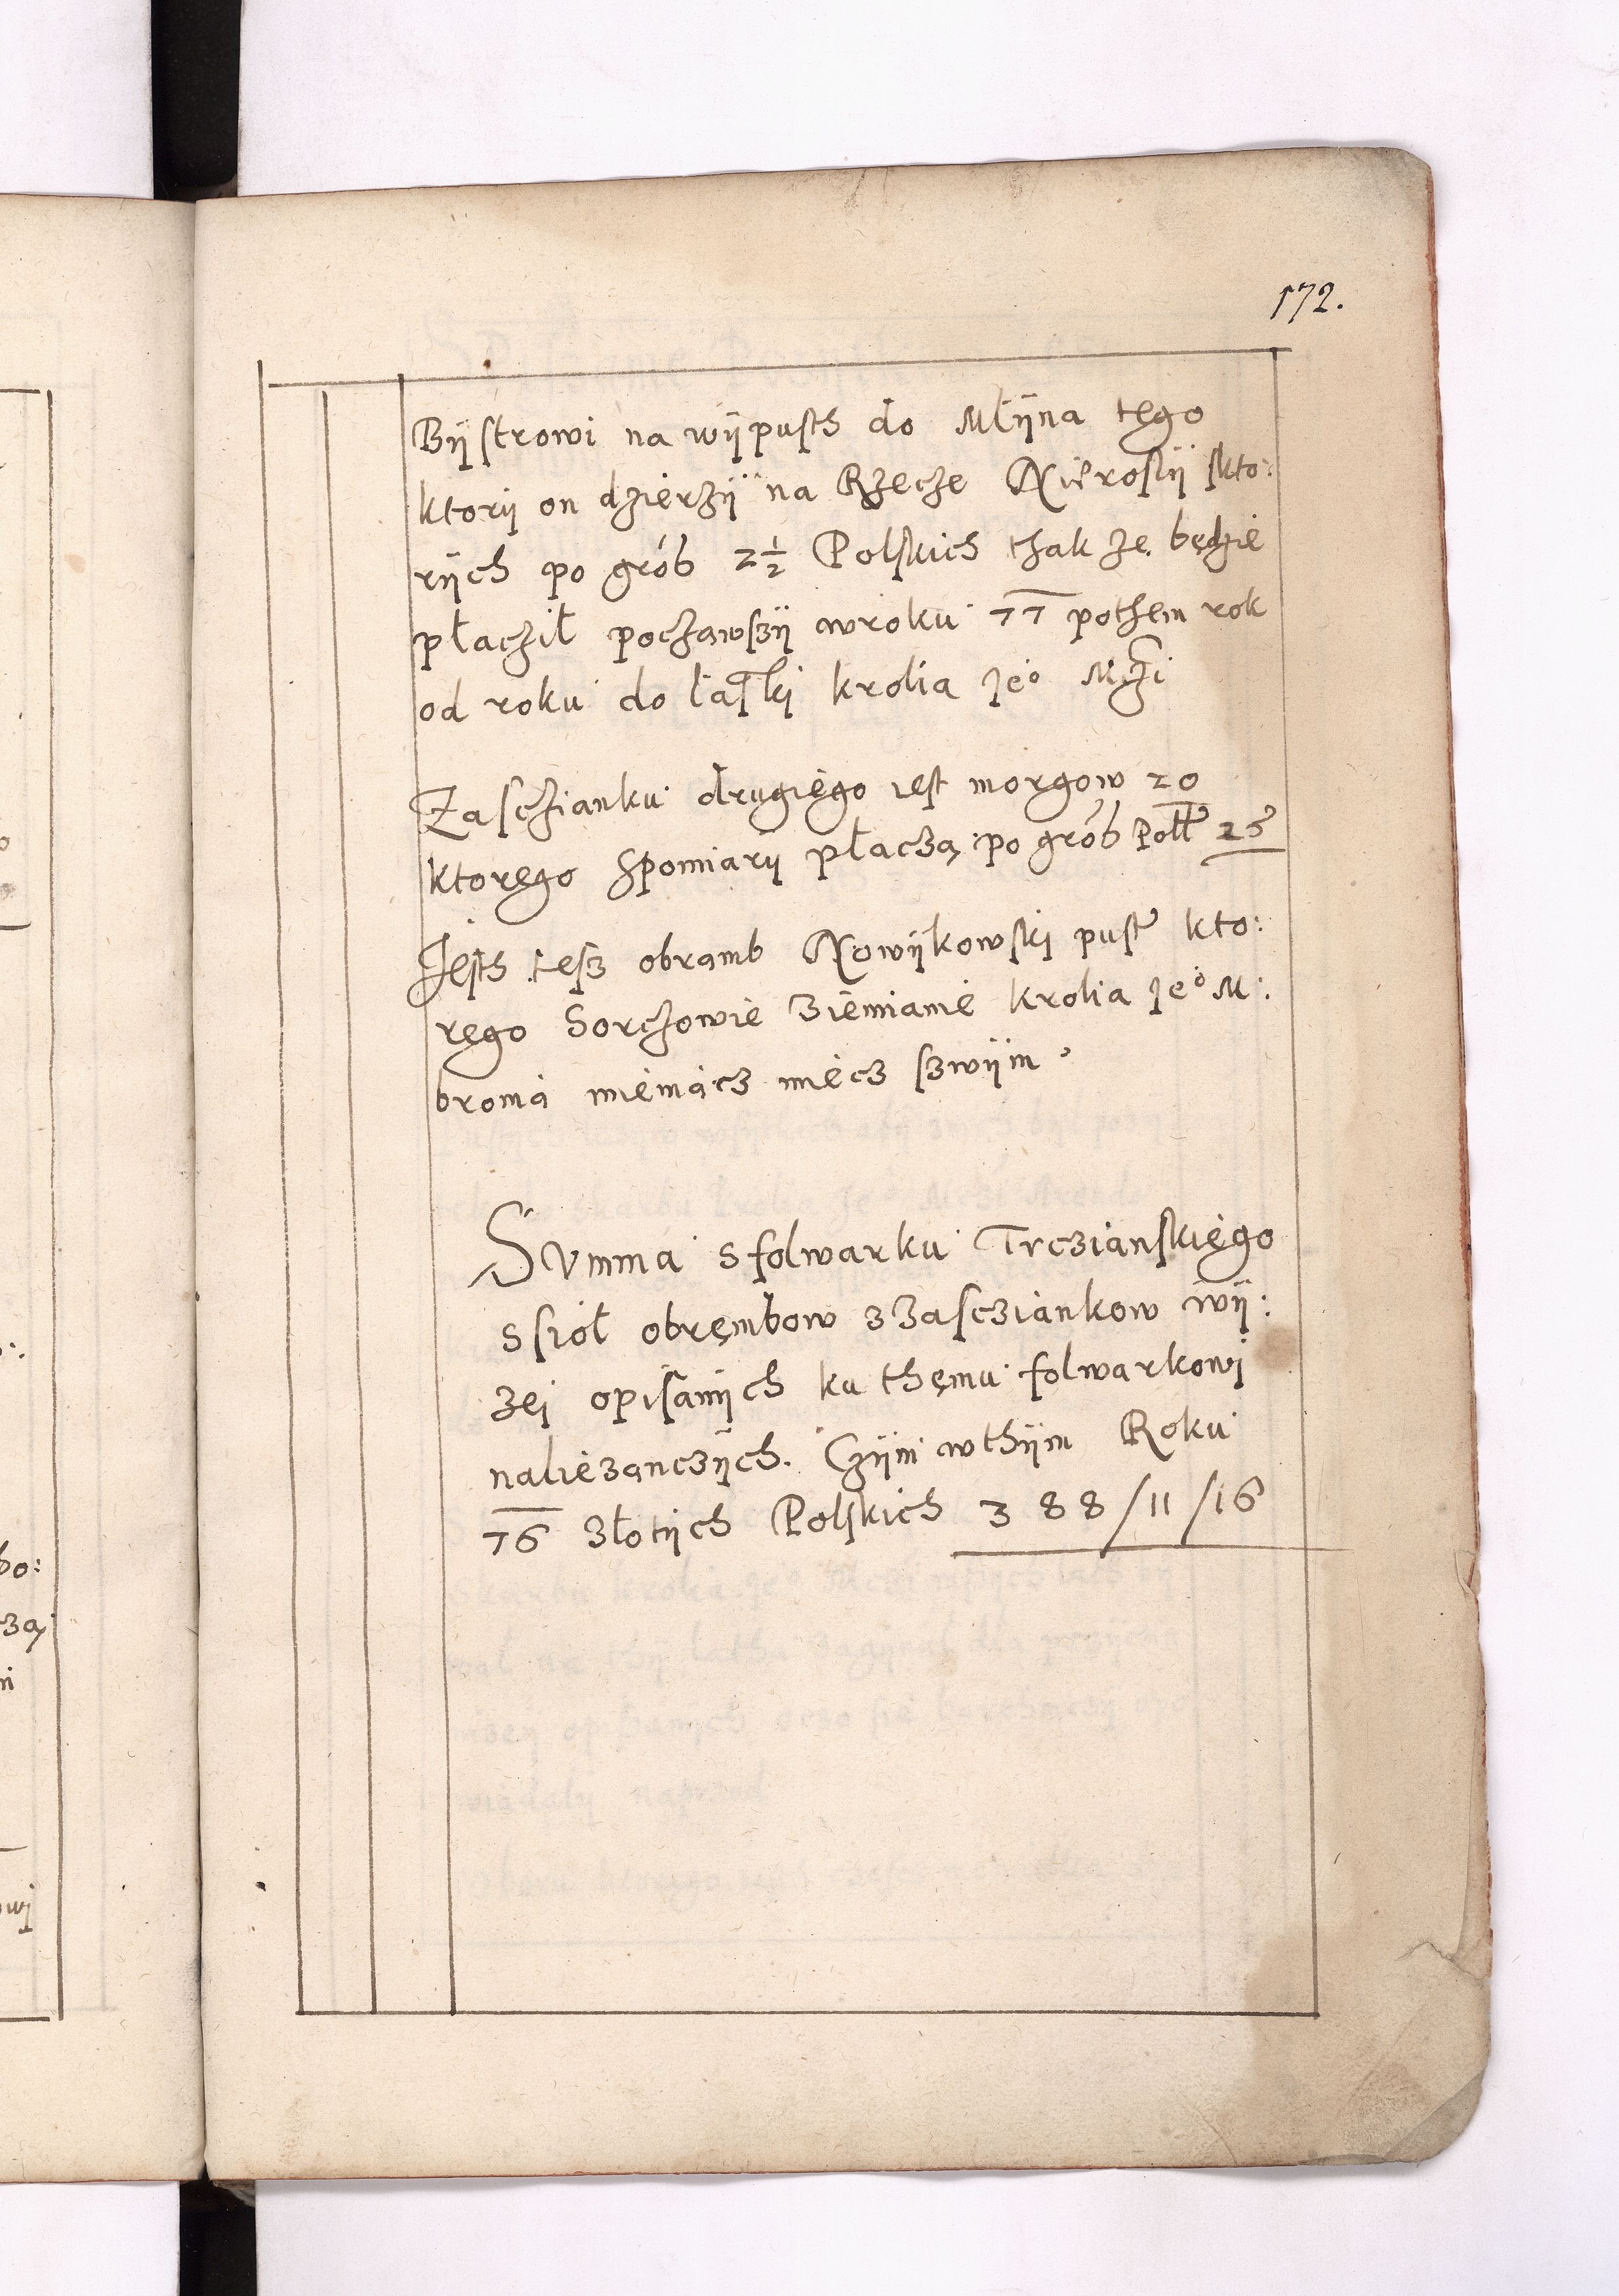 172.
Bystrowi na wypusth do Młyna tego
ktory on dzierzy na Rzecze Nierosly skto:
rych po grob 2½ Polskich thak ze będzie
płaczil poczawszy w roku 77 pothem rok
od roku do łaski krolia Jeo Mczi
Zasczianku drugiego iest morgow 20
ktorego spomiary płaczą po grob Poll
Jesth tesz obramb Nowykowski pust kto:
rego Sorczowie Ziemianie krolia Jeo M:
bronią mieniącz miecz szwym
Summa s folwarku Trczianskiego
s sioł obrembow z Zascziankow wy:
zei opisanych ku themu folwarkowi
naliezanczych. Czyni w thym Roku
76 złotych Polskich 388/11/16